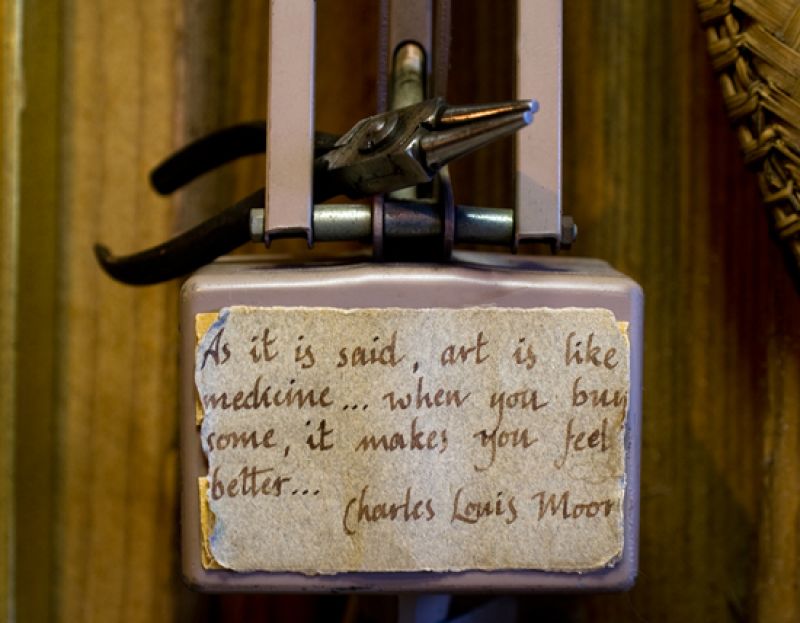 As it is said, art is like
medicine... when you buy
some, it makes you feel
better...
Charles Louis Moor